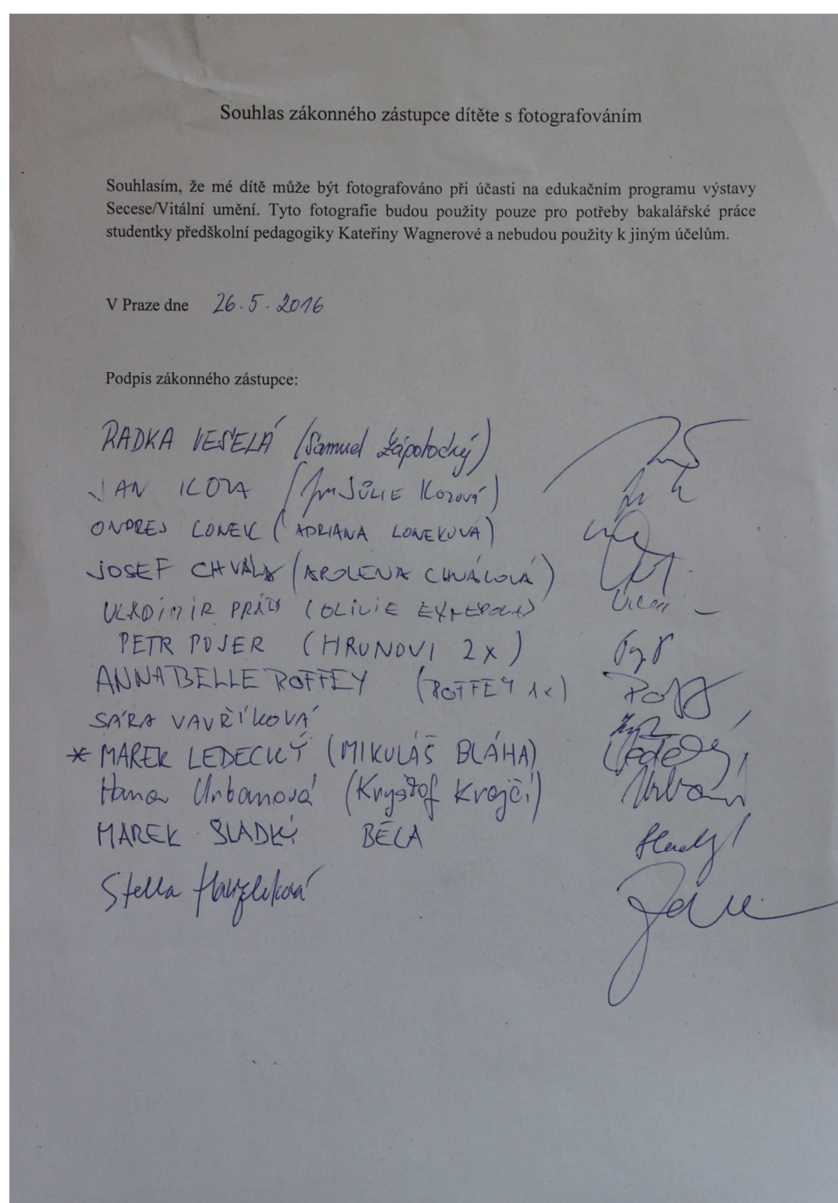 Souhlas zákonného zástupce dítěte s fotografováním
Souhlasím, že mé dítě může být fotografováno při účasti na edukačním programu výstavy
Secese/Vitální umění. Tyto fotografie budou použity pouze pro potřeby bakalářské práce
studentky předškolní pedagogiky Kateřiny Wagnerové a nebudou použity k jiným účelům.
V Praze dne 26.5.2016
Podpis zákonného zástupce:
RADKA VESELÁ (Samuel Zápotocký)
JAN
ONDREJ LONEK (ADRIANA LONEKOVA)
JOSEF CHVÁLA (APOLENA CHVÁLOVÁ)
VLADIMIR (OLIVIE
PETR POJER (HRUNOVI 2x)
ANNABELLE ROFFEY (ROFFEY 1x)
SÁRA VAVŘÍKOVÁ
* MAREK LEDECKÝ (MIKULÁŠ BLÁHA)
Hana Urbanová (Kryštof Krejčí)
MAREK SLADKÝ BĚLA
Stella